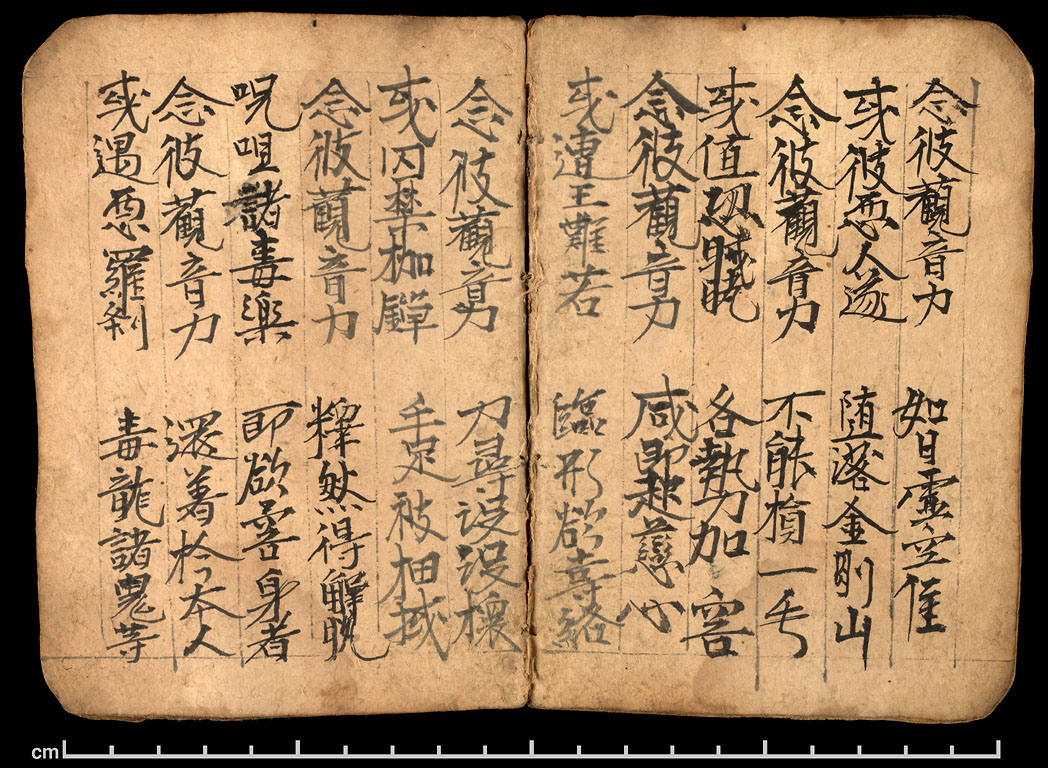 念彼觀音力 如日虛空住
或彼惡人逐 墮落金剛山
念彼觀音力 不能損一毛
或值怨賊遶 各執刀加害
念彼觀音力 咸即起慈心
或遭王難苦 臨形欲壽終
念彼觀音力 刀尋段段壞
或囚禁枷鎖 手足被杻械
念彼觀音力 釋然得解脫
呪咀諸毒藥 所欲害身者
念彼觀音力 還著於本人
或遇惡羅剎 毒龍諸鬼等
cm